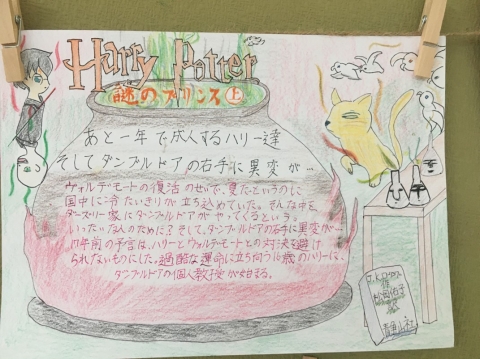 Harry Potter
謎のプリンス 上
あと一年で成人するハリー達
そしてダンブルドアの右手に異変が…
ヴォルデモートの復活のせいで、夏だというのに
国中に冷たいきりが立ち込めていた。そんな中を、
ダーズリー家にダンブルドアがやってくるという。
いったい なんのために？そして、ダンブルドアの右手に異変が…
十六年前の予言は、ハリーとヴォルデモートとの対決を避け
られないものにした。過酷な運命に立ち向う16歳のハリーに、
ダンブルドアの個人教授が始まる。
J.K.ローリング
作
松岡佑子
訳
静山社